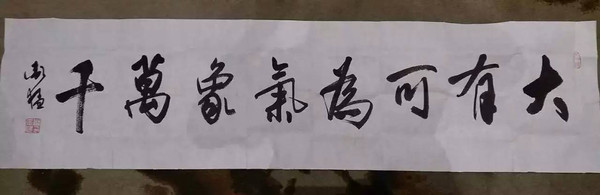 大有可為氣象萬千